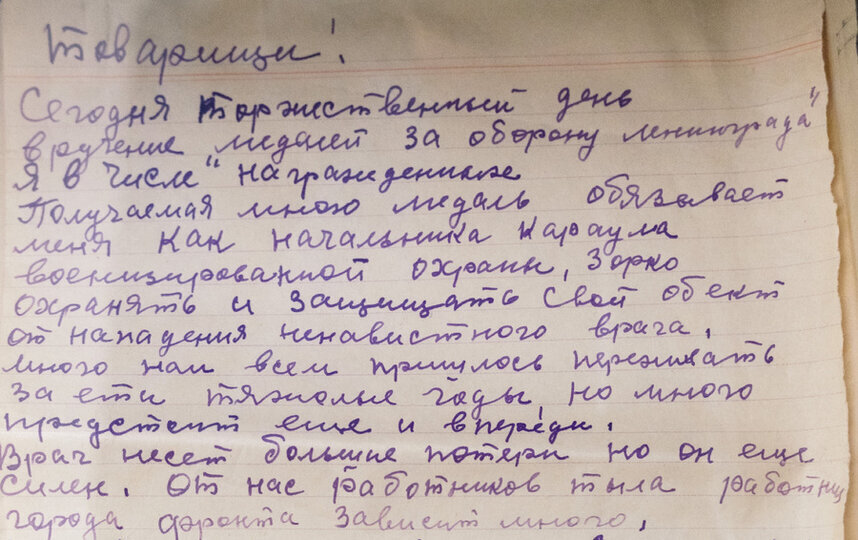 Товарищи!
Сегодня торжественный день
вручение медалей за оборону Ленинграда"
Я в числе "награжденных
Получаемая мною медаль обязавает
меня как начальника караула
военизированной охраны, зорко
охранять и защищать свой обект
от нападения ненавистного врага.
много нам всем пришлось переживать
за эти тяжолые годы, но много
предстоит еще и впереди.
Враг несет большие потери но он еще
силен. От нас работников тыла работниц
города фронта зависит много.